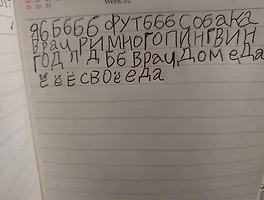 Week 52
яб Бббб ФУТ ббб Собака
Врац РИМ НОГО ПИНГВИН
ГОД Л'Д Бб Врац ДОМ еДа
ё ё Ё СВОё еда